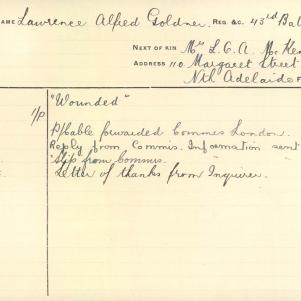 NAME Lawrence Alfred Goldner. REG &C. 43rd Bat
NEXT OF KIN Mrs L. G. A. McKen
ADDRESS 110 Margaret Street
Nth Adelaide
"Wounded"
P/Cable forwarded Commis London.
Reply from Commis. Information sent
Slip from Commis.
Letter of thanks from Inquirer.